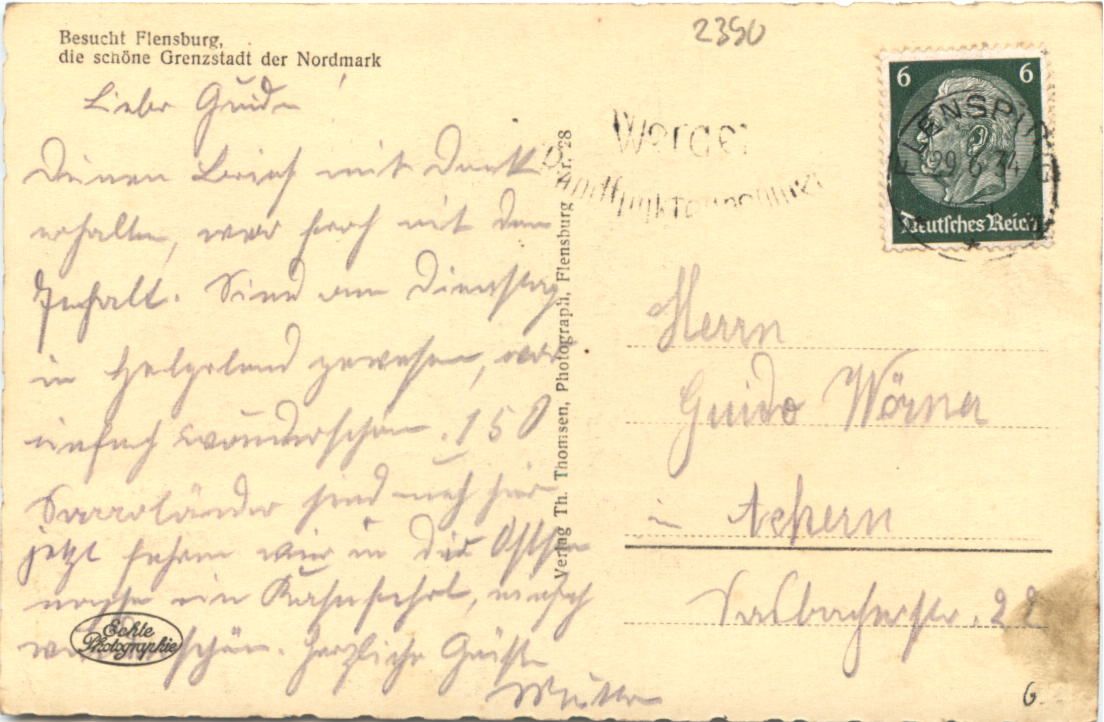 2350
Besucht Flensburg,
die schöne Grenzstadt der Nordmark
Lieber Guido!
Deinen Brief mit Dank
erhalten, war froh mit dem
Inhalt. Sind am Dienstag
in Helgoland gewesen, war
einfach wunderschön. 150
Saarländer sind auch hier
jetzt fahren wir in die Ostsee
machen ein Kahnfahrt, einfach
schön. Herzliche Grüße
Mutter
Echte
Photographie
Verlag Th. Thomsen, Photograph, Flensburg Nr. 28
Werdet
Rundfunkteilnehmer
6 6
FLENSBURG
29.6.34
Deutsches Reich
Herrn
Guido Wörner
in Achern
6